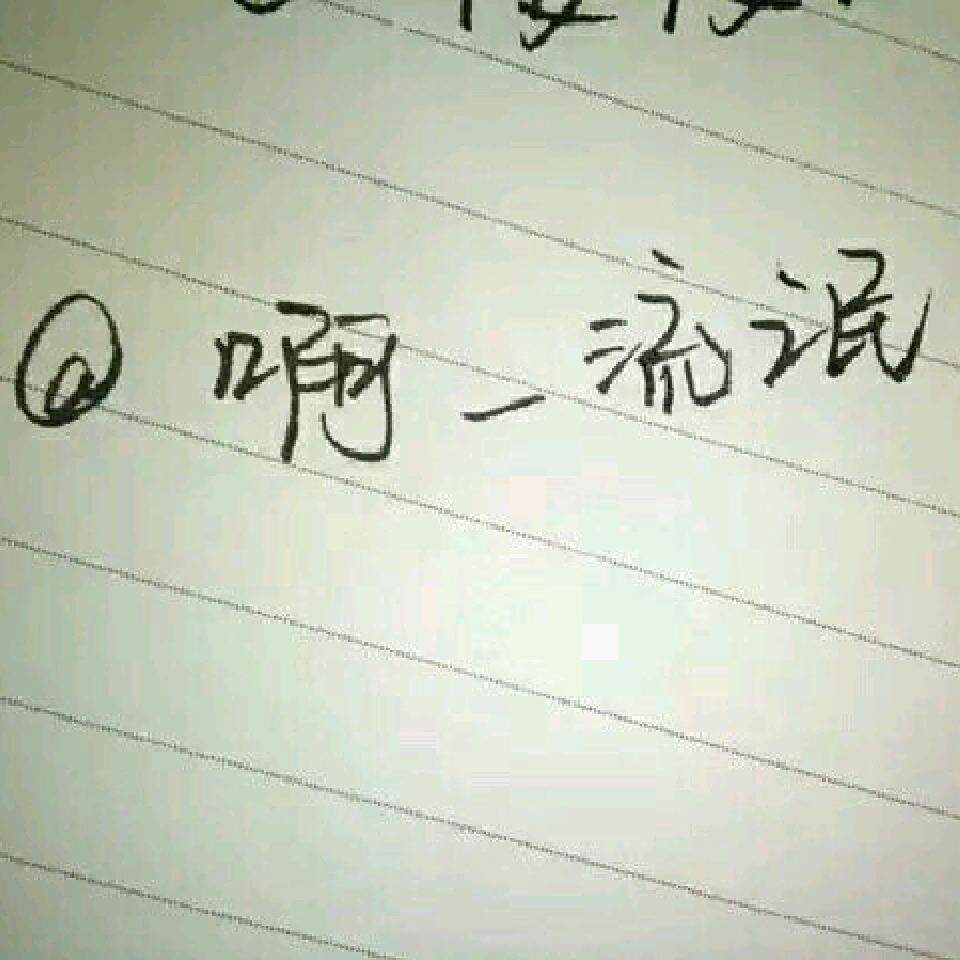 @ 啊_流氓